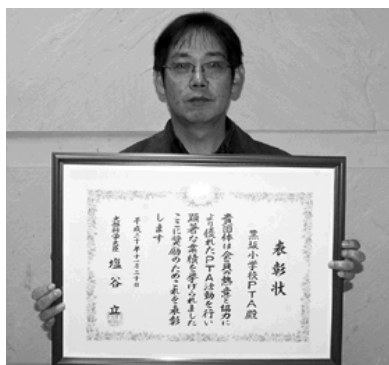 表彰状
黒坂小学校PTA殿
貴団体は会員の熱意と協力に
より優れたPTA活動を行い
顕著な業績を挙げられました
ここに奨励のためこれを表彰
します
平成二十年十一月二十日
文部科学大臣 塩谷 立